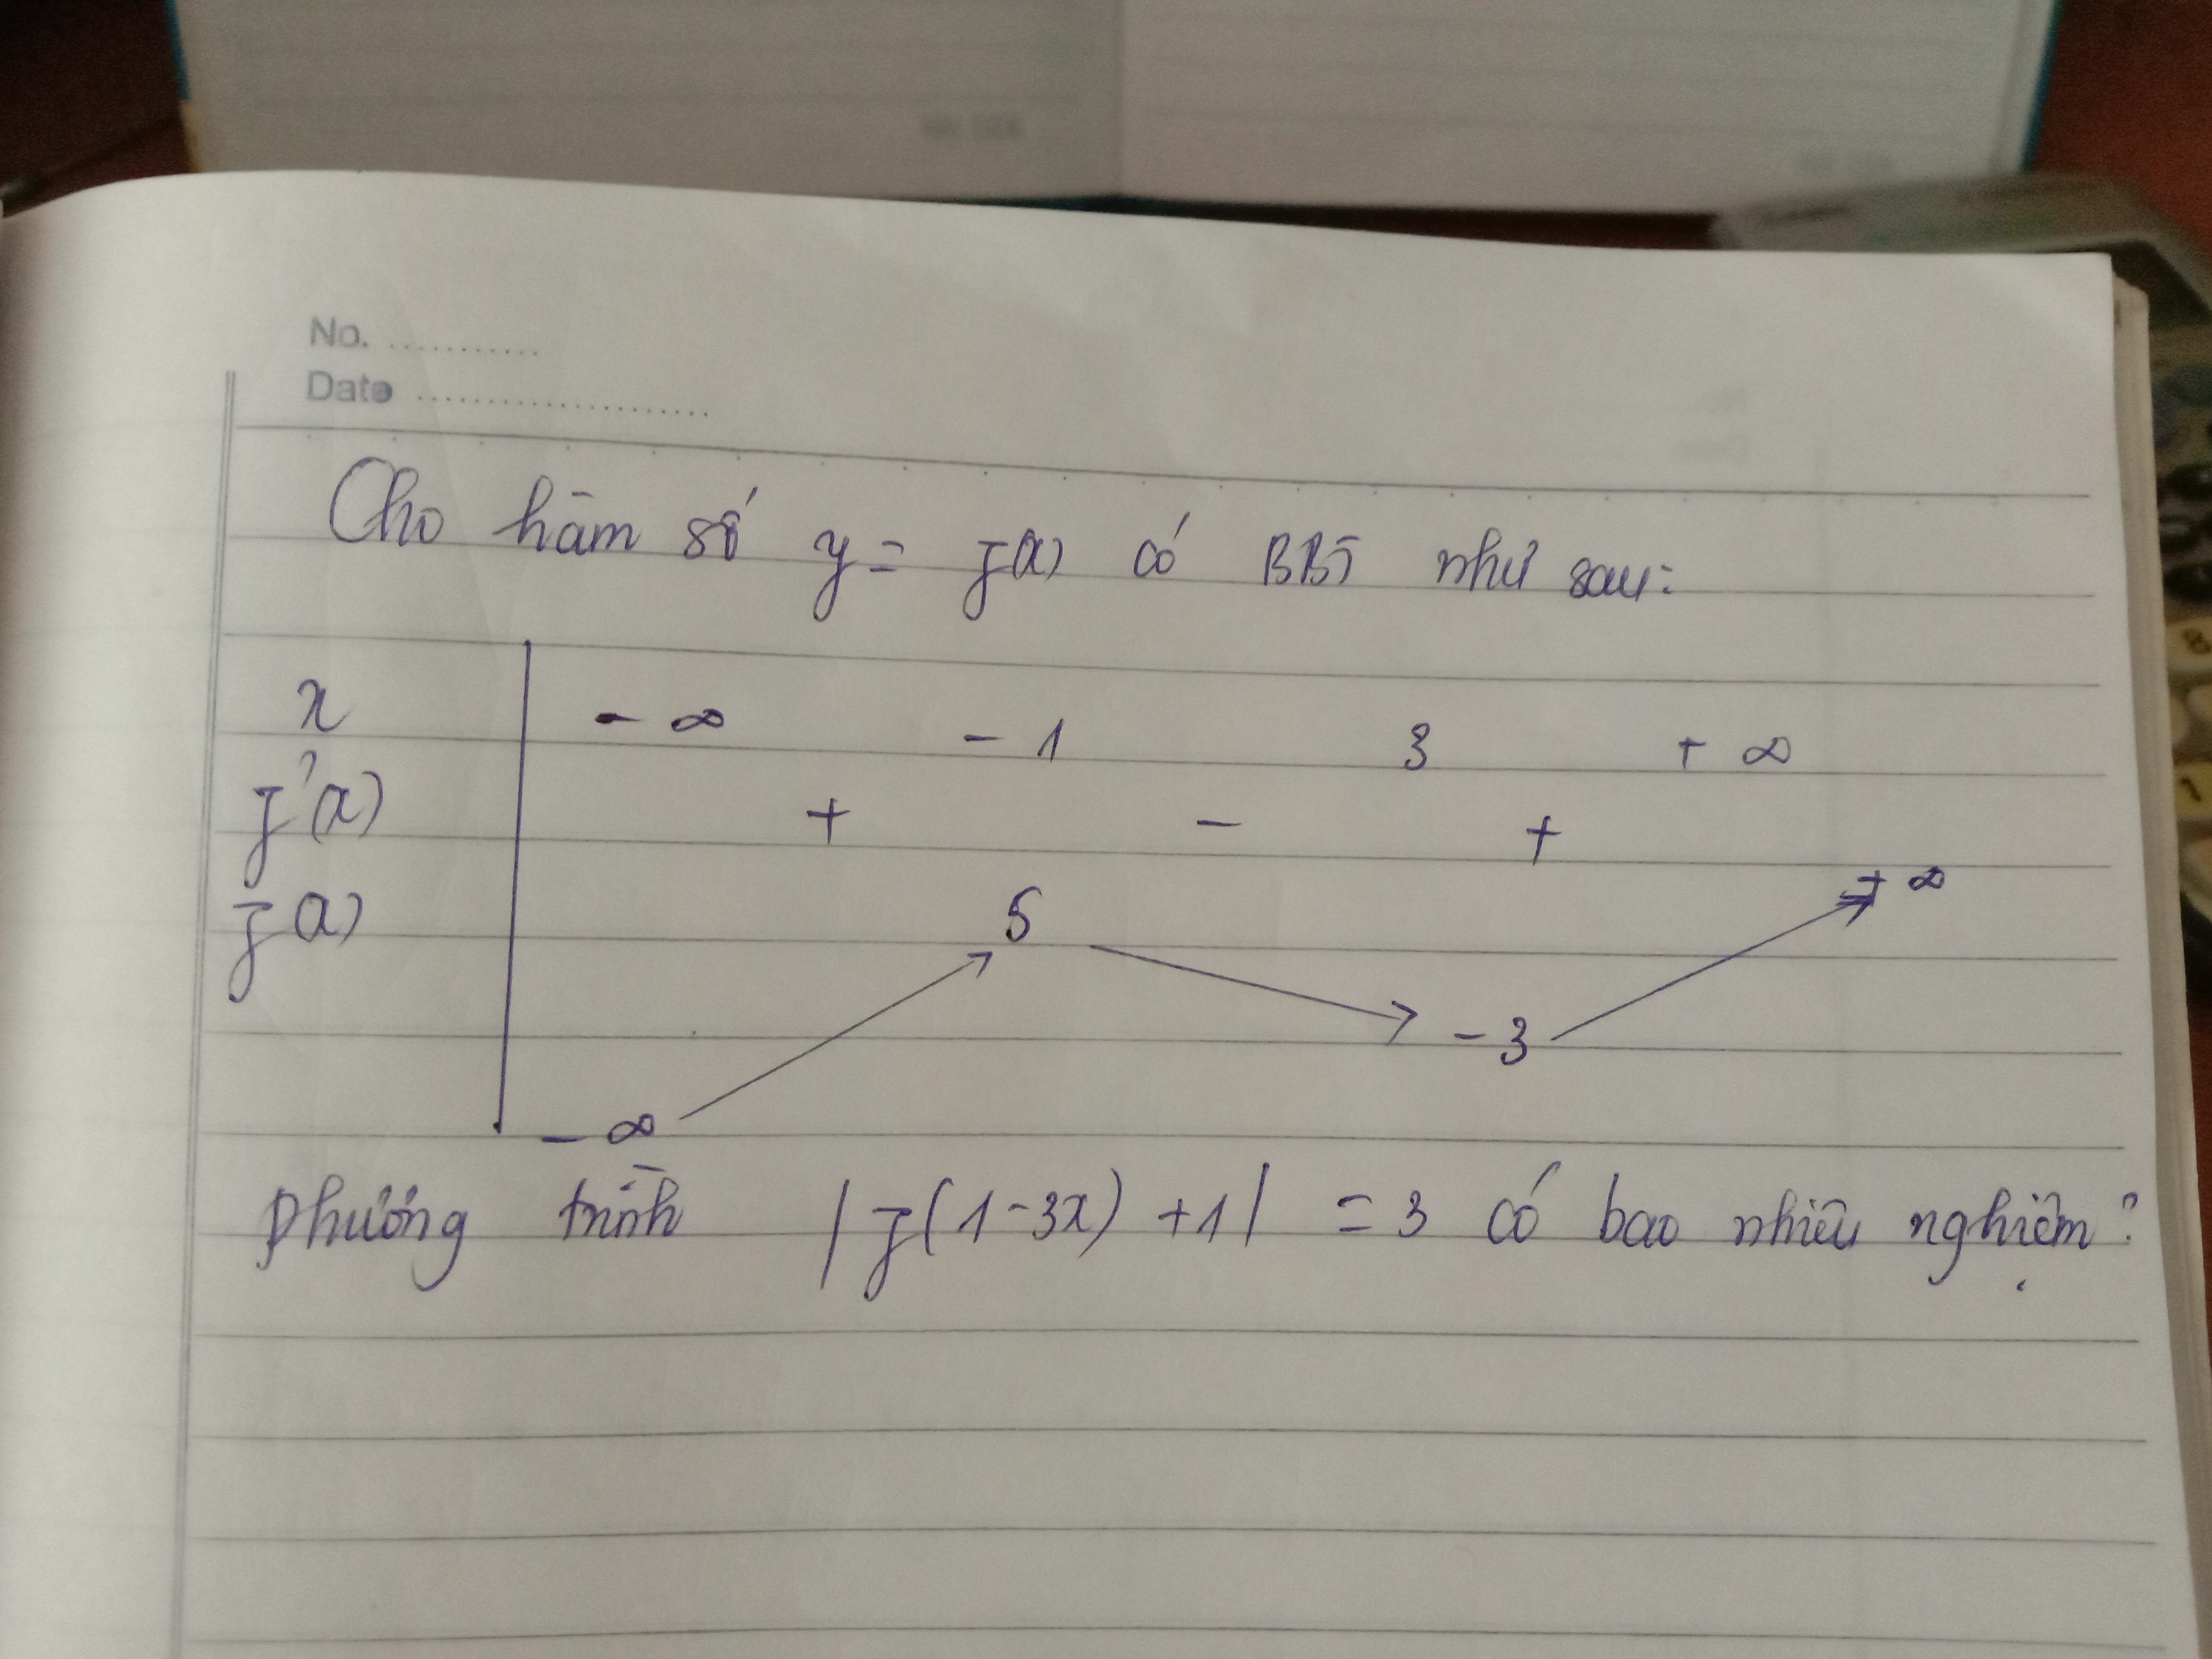 No. ............
Date ......................
Cho hàm số y = f(x) có BBT như sau:
x - ∞ - 1 3 + ∞
f'(x) + - +
f(x) 5 + ∞
- 3
- ∞
phương trình |f(1-3x) +1| = 3 có bao nhiêu nghiệm?
8